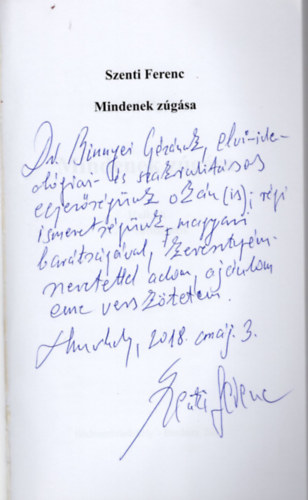 Szenti Ferenc
Mindenek zúgása
Dr. Binnyei Gézának, elvi-ide-
ológiai- és szakralitásos
egyerőségünk okán (is); régi
ismeretségünk, magyari
barátságával,
szeretettel adom, ajánlom
eme verskötetem.
2018. máj. 3.
Szenti Ferenc